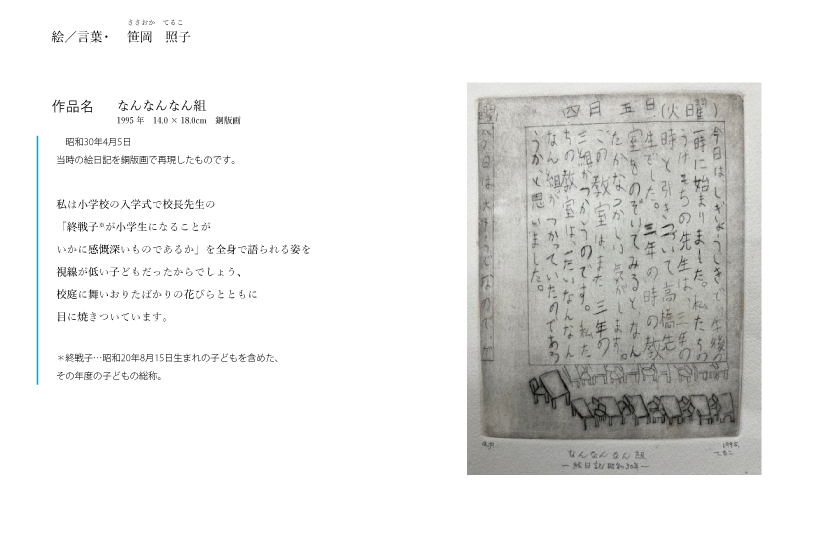 ささおか　てるこ
絵／言葉・　笹岡　照子
作品名　なんなんなん組
1995 年　14.0 × 18.0cm　銅版画
昭和30年4月5日
当時の絵日記を銅版画で再現したものです。
私は小学校の入学式で校長先生の
「終戦子※が小学生になることが
いかに感慨深いものであるか」を全身で語られる姿を
視線が低い子どもだったからでしょう、
校庭に舞いおりたばかりの花びらとともに
目に焼きついています。
＊終戦子…昭和20年8月15日生まれの子どもを含めた、
その年度の子どもの総称。
四月　五日(火曜)
今日はしぎょうしきで午後
一時に始まりました。私たちの
うけもちの先生は、三年の
時と引きつづいて高橋先
生でした。三年の時の教
室をのぞいてみると、なん
だかなつかしい気がします。
この教室はまた、三年の
三組がつかうのです。私た
ちの教室は、だいなんなん
なん組がつかっていたのであろ
うか、と思いました。
なんなんなん組
ー絵日記昭和30年ー
1995.
てるこ